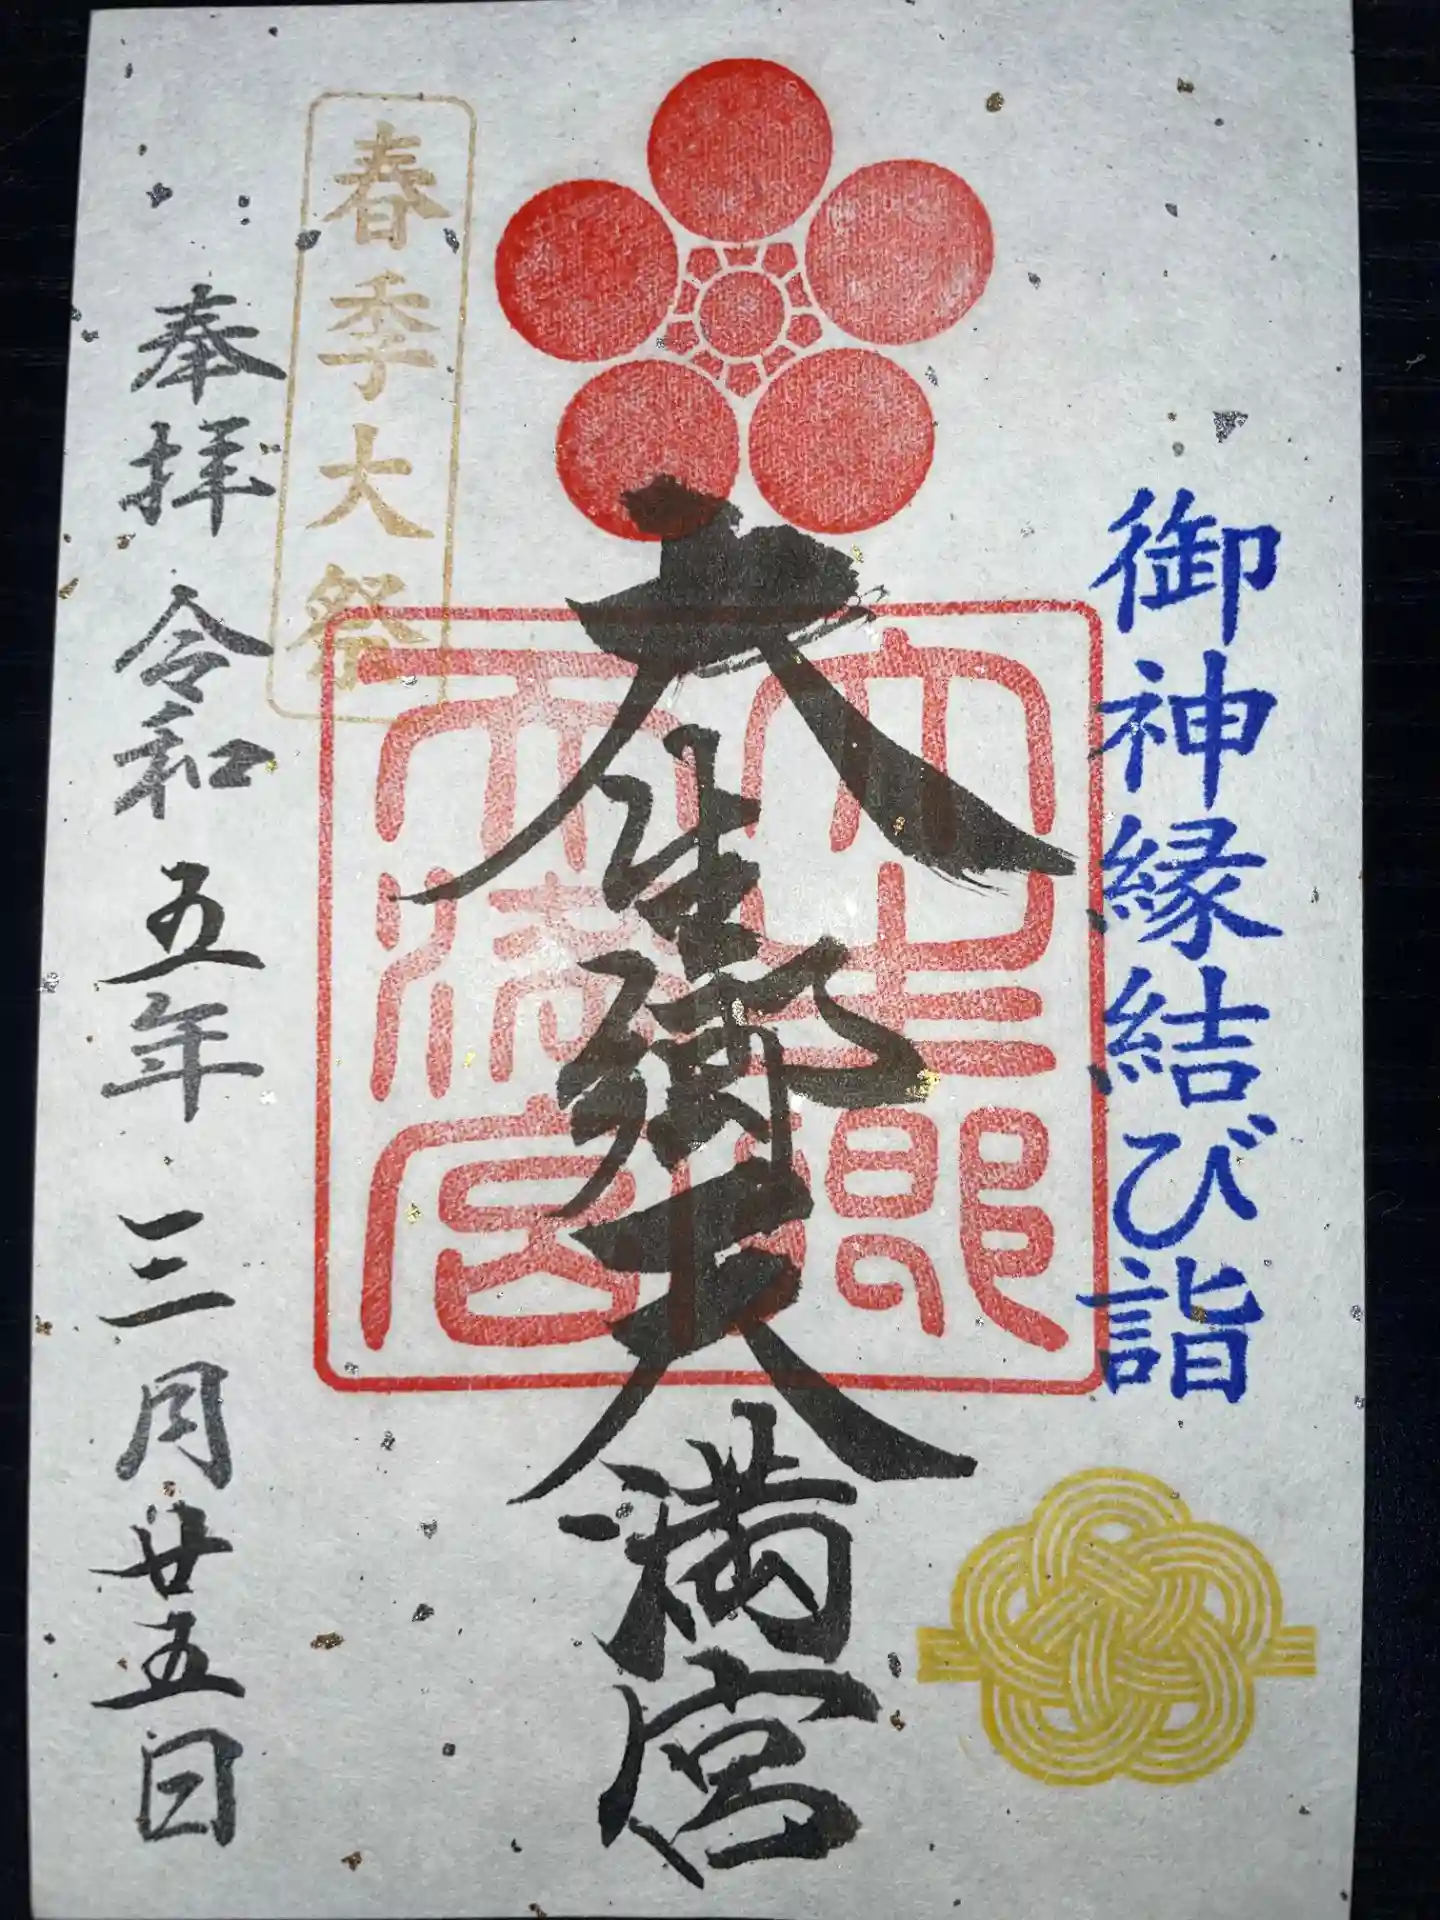 御神縁結び詣
大生郷天満宮
大生郷天満宮
春季大祭
奉拝 令和五年三月廿五日